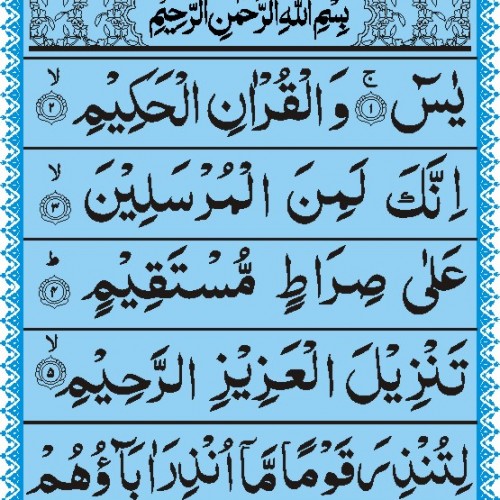 بِسْمِ اللهِ الرَّحْمٰنِ الرَّحِيْمِ
يٰسٓ ۚ ﴿۱﴾ وَالْقُرْاٰنِ الْحَكِيْمِ ۙ ﴿۲﴾
اِنَّكَ لَمِنَ الْمُرْسَلِيْنَ ۙ ﴿۳﴾
عَلٰى صِرَاطٍ مُّسْتَقِيْمٍ ؕ ﴿۴﴾
تَنْزِيْلَ الْعَزِيْزِ الرَّحِيْمِ ۙ ﴿۵﴾
لِتُنْذِرَ قَوْمًا مَّاۤ اُنْذِرَ اٰبَآؤُهُمْ